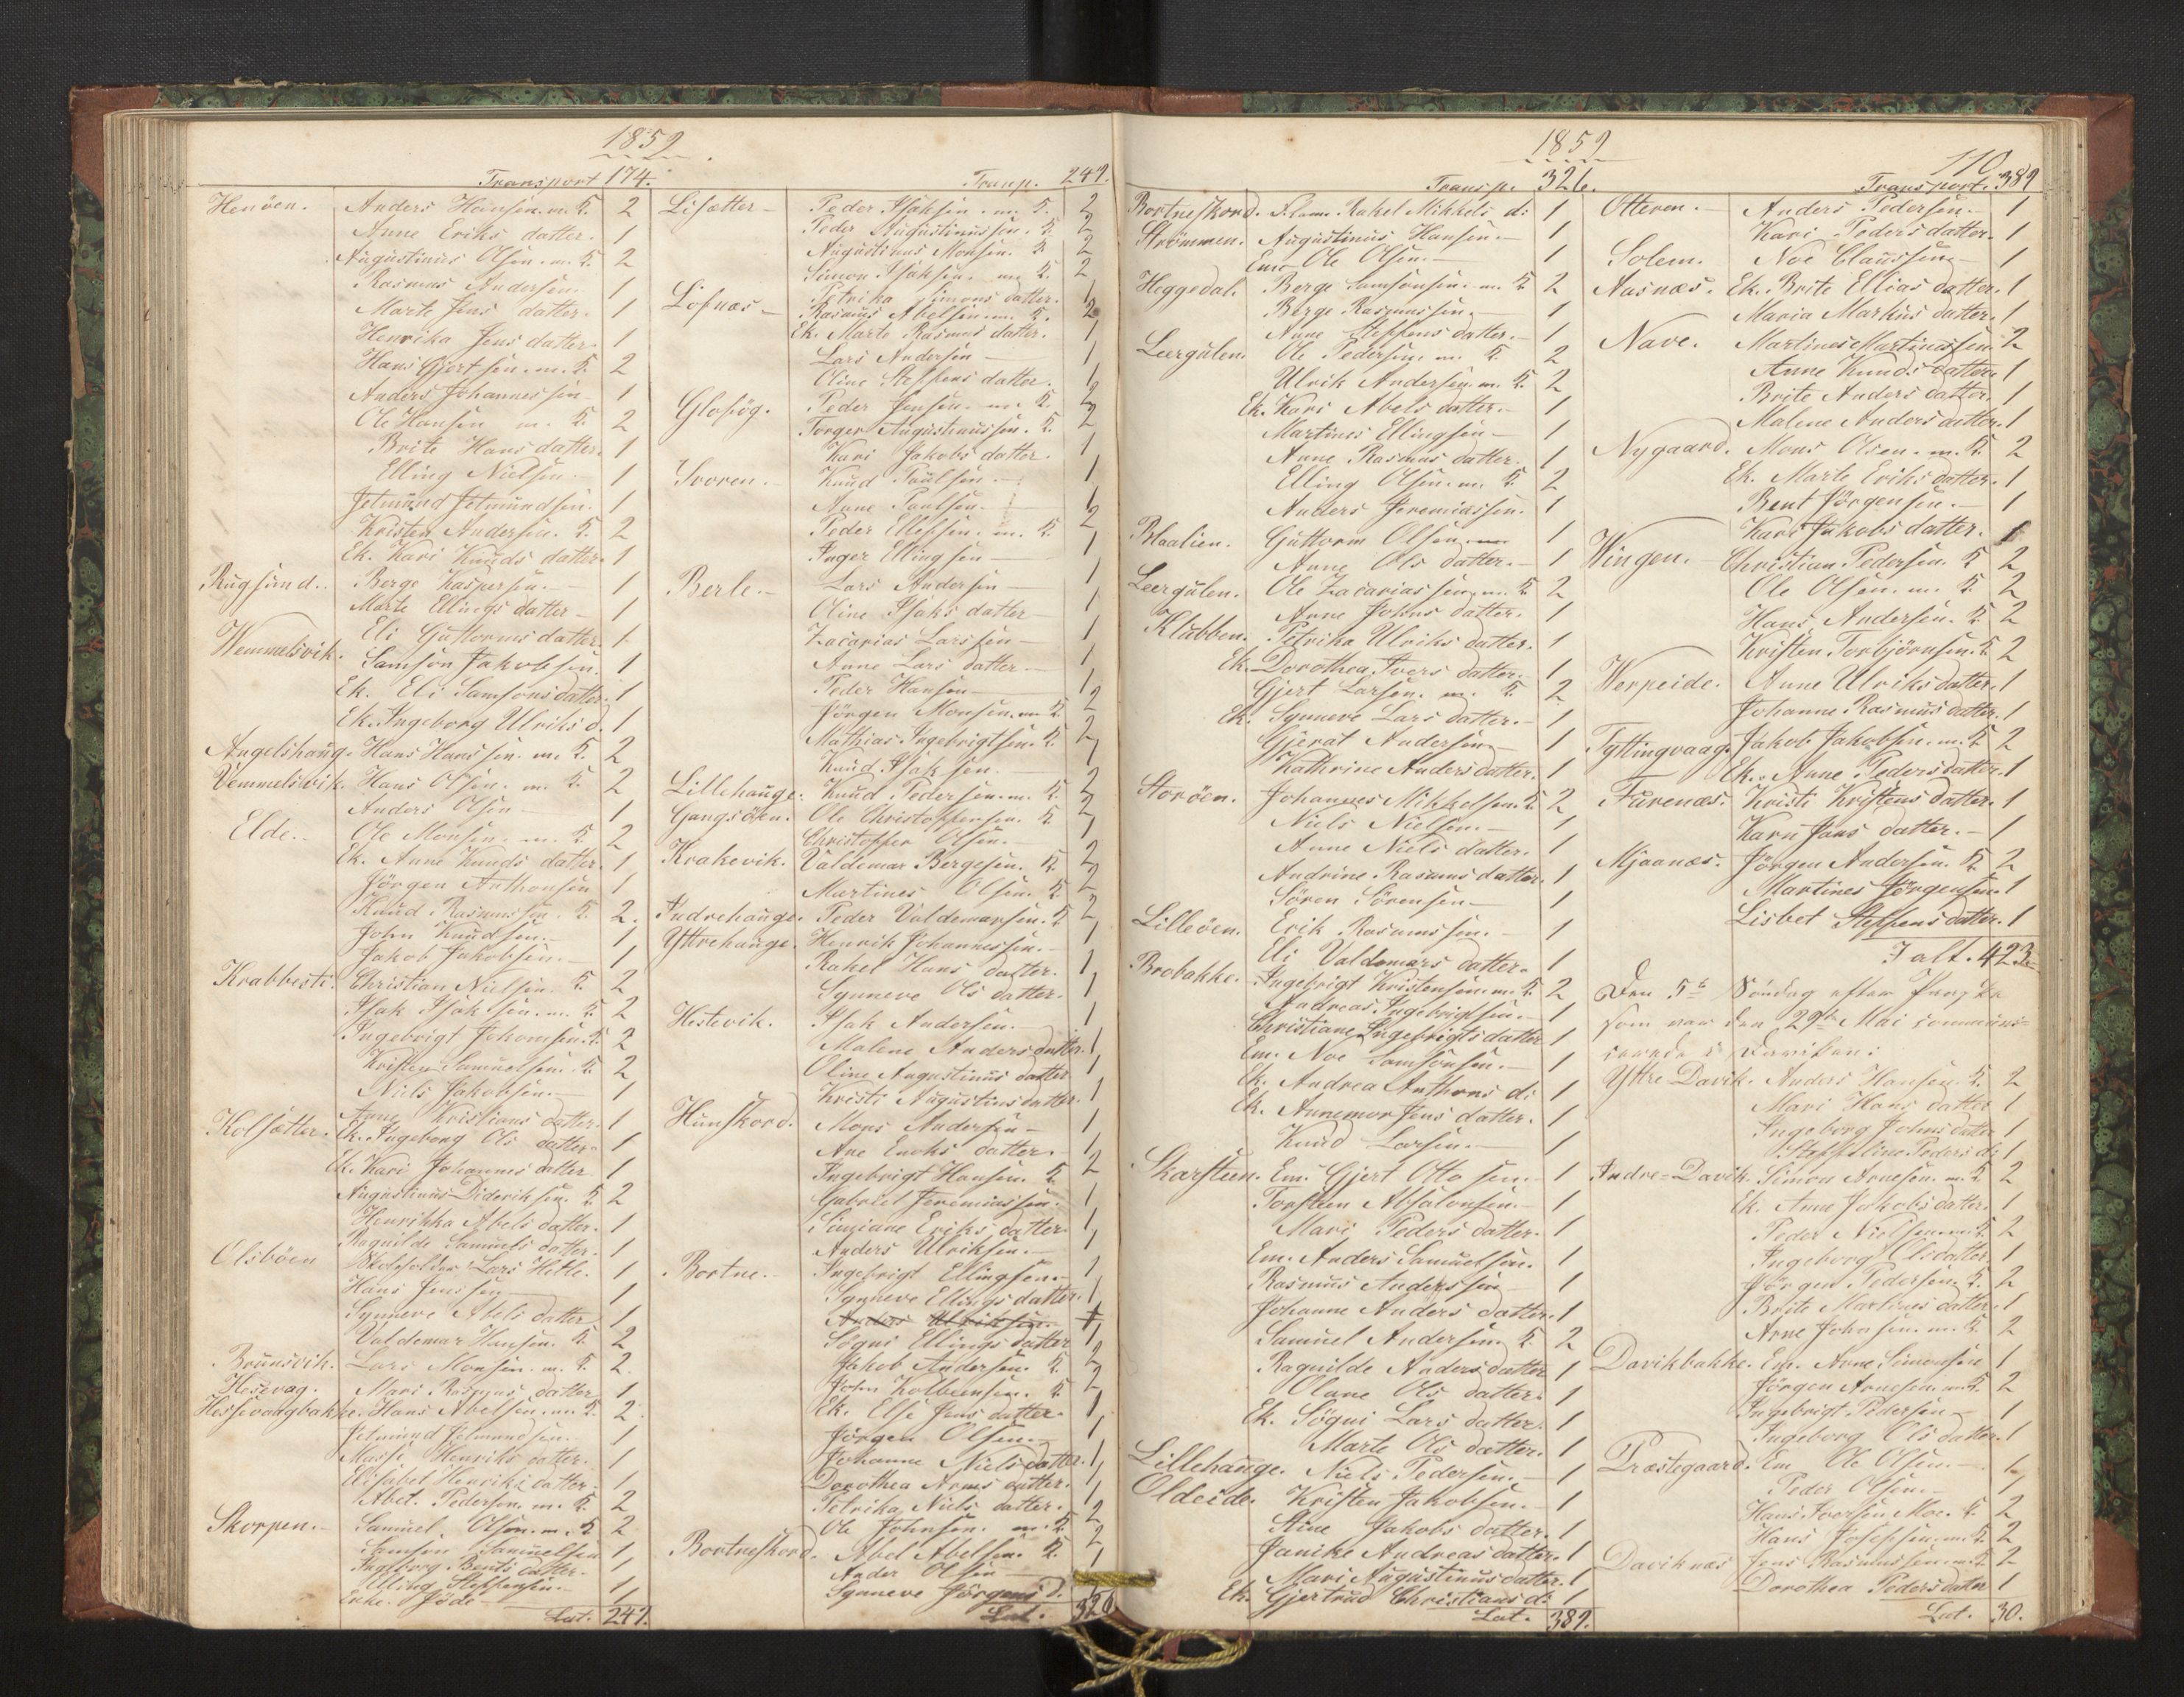 1859
Transport 174.
Henöen. Anders Hansen. m. K. 2
Anne Eriks datter. 1
Augustinus Olsen. m. K. 2
Rasmus Andersen 1
Marte Jens datter. 1
Henrika Jens datter. 1
Hans Gjertsen. m. K. 2
Anders Johannessen 1
Ole Hansen m. K. 2
Brite Hans datter. 1
Elling Nielsen. 1
Jetmund Jetmundsen. 1
Kristen Andersen. K. 2
Ek. Kari Knuds datter. 1
Rugsund. Berge Kaspersen. 1
Marte Ellings datter 1
Eli Guttorms datter. 1
Wemmelsvik. Samson Jakobsen. 1
Ek. Eli Samsons datter. 1
Ek. Ingeborg Ulriks d. 1
Angelshaug. Hans Hanssen. m. K. 2
Vemmelsvik. Hans Olsen. m. K. 2
Anders Olsen 1
Elde. Ole Monsen. m. K. 2
Ek. Anne Knuds datter. 1
Jörgen Anthonsen 1
Knud Rasmussen. K. 2.
John Knudsen. 1
Jakob Jakobsen. 1
Krabbesti. Christian Nielsen. K. 2
Isak Isaksen. m. K. 2
Ingebrigt Johansen. K. 2
Kristen Samuelsen. K. 2
Niels Jakobsen. 1
Anne Kristians datter. 1
Kolsætter. Ek. Ingeborg Ols datter. 1
Ek. Kari Johannes datter 1
Augustinus Dideriksen. K. 2
Henrikka Abels datter. 1
Ragnilde Samuels datter. 1
Olsböen Skoleholder Lars Hetle. 1
Hans Jenssen 1
Synneve Abels datter 1
Valdemar Hansen. K. 2
Brunsvik. Lars Monsen. m. K. 2.
Hesevag. Mari Rasmus datter 1
Hessevaagbakke. Hans Abelsen. m. K. 2.
Jetmund Jetmundsen. 1
Masse Henriks datter. 1
Lisabet Henriks datter. 1
Abel. Pedersen. m. K. 2
Skorpen. Samuel. Olsen. m. K. 2
Samson Samuelsen 1
Ingeborg Bents datter. 1
Elling Steffensen. 1
1
Lat. 249.
Transp. 249.
Lisætter Peder Isaksen. m. K. 2
Peder Augustinussen. K. 2
Augustinus Monsen. K. 2
Simon Isaksen. m. K. 2
Petrika Simons datter. 1
Löfnæs Rasmus Abelsen m. K. 2
Ek. Marte Rasmus datter. 1
Lars Andersen 1
Oline Steffens datter. 1
Glosög. Peder Jensen. m. K. 2
Torger Augustinussen. K. 2
Kari Jakobs datter. 1
Ivoren. Knud Paulsen. 1
Anne Paulsen. 1
Peder Ellefsen. m. K. 2
Inger Ellingsen 1
Berle. Lars Andersen 1
Oline Isaks datter 1
Zacarias Larssen 1
Anne Lars datter 1
Peder Hansen 1
Jörgen Monsen. m K. 2
Mathias Ingebrigtsen. K. 2
Knud Isaksen. 1
Lillehauge. Knud Pedersen. m. K. 2
Gangsöen. Ole Christoffersen. K. 2
Christoffer Olsen. 1
Krakevik. Valdemar Bergesen. K. 2
Martines Olsen. K. 2
Indrehauge. Peder Valdemarsen. K 2
Yttrehauge. Henrik Johannessen. 1
Rakel Hans datter. 1
Synneve Ols datter. 1
Hestevik. Isak Andersen. 1
Malene Anders datter. 1
Oline Augustinus datter 1
Kristi Augustinus datter. 1
Hunskord. Mons Andersen 1
Ane Enoks datter. 1
Ingebrigt Hansen. K. 2
Gabriel Jeremiassen 1
Simiane Eriks datter. 1
Anders Ulriksen. 1
Bortne. Ingebrigt Ellingsen. 1
Synneve Ellings datter. 1
Anders Ulriksen. 1
Sögni Ellings datter 1
Jakob Andersen. K. 2
John Kolbeensen. K. 2
Ek. Else Jens datter. 1
Jörgen Olsen. 1
Johanne Niels datter. 1
Dorothea Arnes datter. 1
Petrika Niels datter. 1
Ole Johnsen. m. K. 2
Bortneskord. Abel Abelsen. K. 2
Ander Olsen 1
Synneve Jörgens d. 1
Lat. 326
1859
110.
Transp. 326.
Bortneskord. Rakel Mikkels d: 1
Strömmen. Augustinus Hansen. 1
Em. Ole Olsen. 1
Heggedal. Berge Samsonsen. m. K 2
Berge Rasmussen. 1
Anne Steffens datter. 1
Leergulen. Ole Pedersen. m. K. 2
Ulrik Andersen. m. K. 2
Ek. Kari Abels datter. 1
Martines Ellingsen 1
Anne Rasmus datter. 1
Elling Olsen. m. K. 2
Anders Jeremiassen. 1
Blaalien. Guttorm Olsen. 1
Anne Ols datter. 1
Leergulen. Ole Zacariassen. m. K 2
Anne Johns datter. 1
Klubben. Petrika Ulriks datter. 1
Ek. Dorothea Ivers datter. 1
Gjert Larsen. m. K. 2
Ek. Synneve Lars datter. 1
Gjerat Andersen. 1
Kathrine Anders datter. 1
Storöen. Johannes Mikkelsen. K. 2
Niels Nielsen. 1
Anne Niels datter. 1
Andrine Rasmus datter. 1
Sören Sörensen 1
Lilleöen. Erik Rasmussen. 1
Eli Valdemars datter. 1
Brobakke. Ingebrigt Kristensen. m. K. 2
Andreas Ingebrigtsen. 1
Christiane Ingebrigts datter 1
Em. Noe Samsonsen. 1
Ek. Andrea Anthons d: 1
Ek. Annemor Jens datter. 1
Knud Larsen. 1
Skarsteen. Em. Gjert Otto sen. 1
Torsteen Absalonsen. 1
Mari Peders datter. 1
Em. Anders Samuelsen. 1
Rasmus Anderssen 1
Johanne Anders datter. 1
Samuel Andersen. K. 2
Ragnilde Anders datter 1
Olane Ols datter. 1
Ek. Sögni Lars datter. 1
Marte Ols datter. 1
Lillehauge. Niels Pedersen. 1
Oldeide. Kristen Jakobsen. 1
Stine Jakobs datter. 1
Janike Andreas datter. 1
Mari Augustinus datter. 1
Ek. Gjertrud Christians d: 1
Lat. 389.
Transport. 389
Otteren. Anders Pedersen. 1
Kari Peders datter. 1
Solem. Noe Claussen. 1
Aasnæs. Ek. Brite Ellias datter. 1
Maria Markus datter. 1
Nave. Martines Martinussen. K 2
Anne Knuds datter. 1
Brite Anders datter. 1
Malene Anders datter. 1
Nygaard. Mons Olsen. m. K. 2
Ek. Marte Eriks datter. 1
Bent Jörgensen. 1
Kari Jakobs datter. 1
Wingen. Christian Pedersen. K 2
Ole Olsen. m. K. 2
Hans Andersen. K. 2
Kristen Torbjörnsen. K 2
Werpeide. Anne Ulriks datter. 1
Johanne Rasmus datter. 1
Tyttingvaag. Jakob Jakobsen. m. K 2
Ek. Anne Peders datter. 1
Furenæs. Kristi Kristens datter. 1
Kari Jans datter. 1
Mjaanæs. Jörgen Andersen. K. 2
Martines Jörgensen. 1
Lisbet Steffens datter. 1
I alt. 423
Den 5te Söndag efter Paaske
som var den 29de Mai communi=
cerede i Daviken:
Yttre Davik. Anders Hansen. K. 2
Mari Hans datter 1
Ingeborg Johns datter 1
Steffeline Peders d: 1
Indre=Davik. Simon Arnesen. m. K 2
Ek. Anne Jakobs datter. 1
Peder Nielsen. m. K. 2
Ingeborg Ols datter. 1
Jörgen Pedersen. K. 2
Brite Martines datter. 1
Arne Johnsen. m. K. 2
Davikbakke. Em. Arne Simonsen 1
Jörgen Arnesen. m. K. 2
Ingebrigt Pedersen 1
Ingeborg Ols datter. 1
Præstegaard. Em Ole Olsen. 1
Peder Olsen. 1
Hans Iversen Moe. K. 2
Hans Josefsen. m. K. 2
Daviknæs Jens Rasmussen. m. K 2
Dorothea Peders datter 1
Lat. 30.